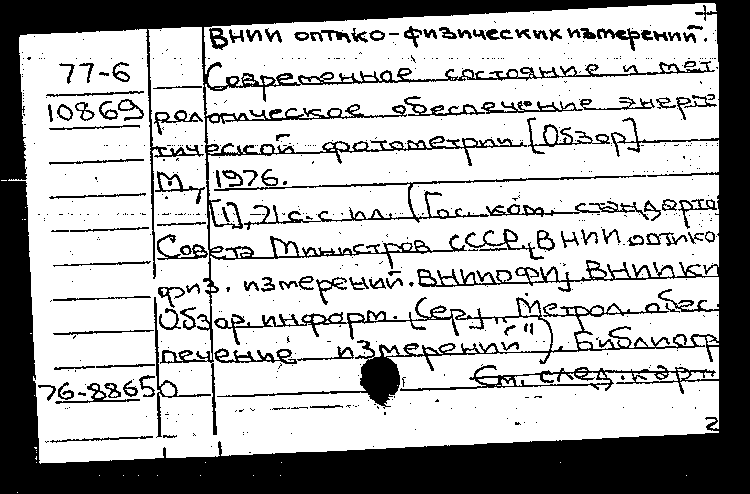 ВНИИ оптико-физических измерений.
77-6 Современное состояние и мет
10869 рологическое обеспечение энерге
тической фотометрии. [Обзор].
М., 1976.
[1], 71 с. с ил. (Гос. ком. стандарто
Совета Министров СССР. ВНИИ оптико
физ. измерений. ВНИИОФИ; ВНИИКИ
Обзор. информ. [Сер.] „Метрол. обес
печение измерений"). Библиогр
76-88650 См. след. карт.
2